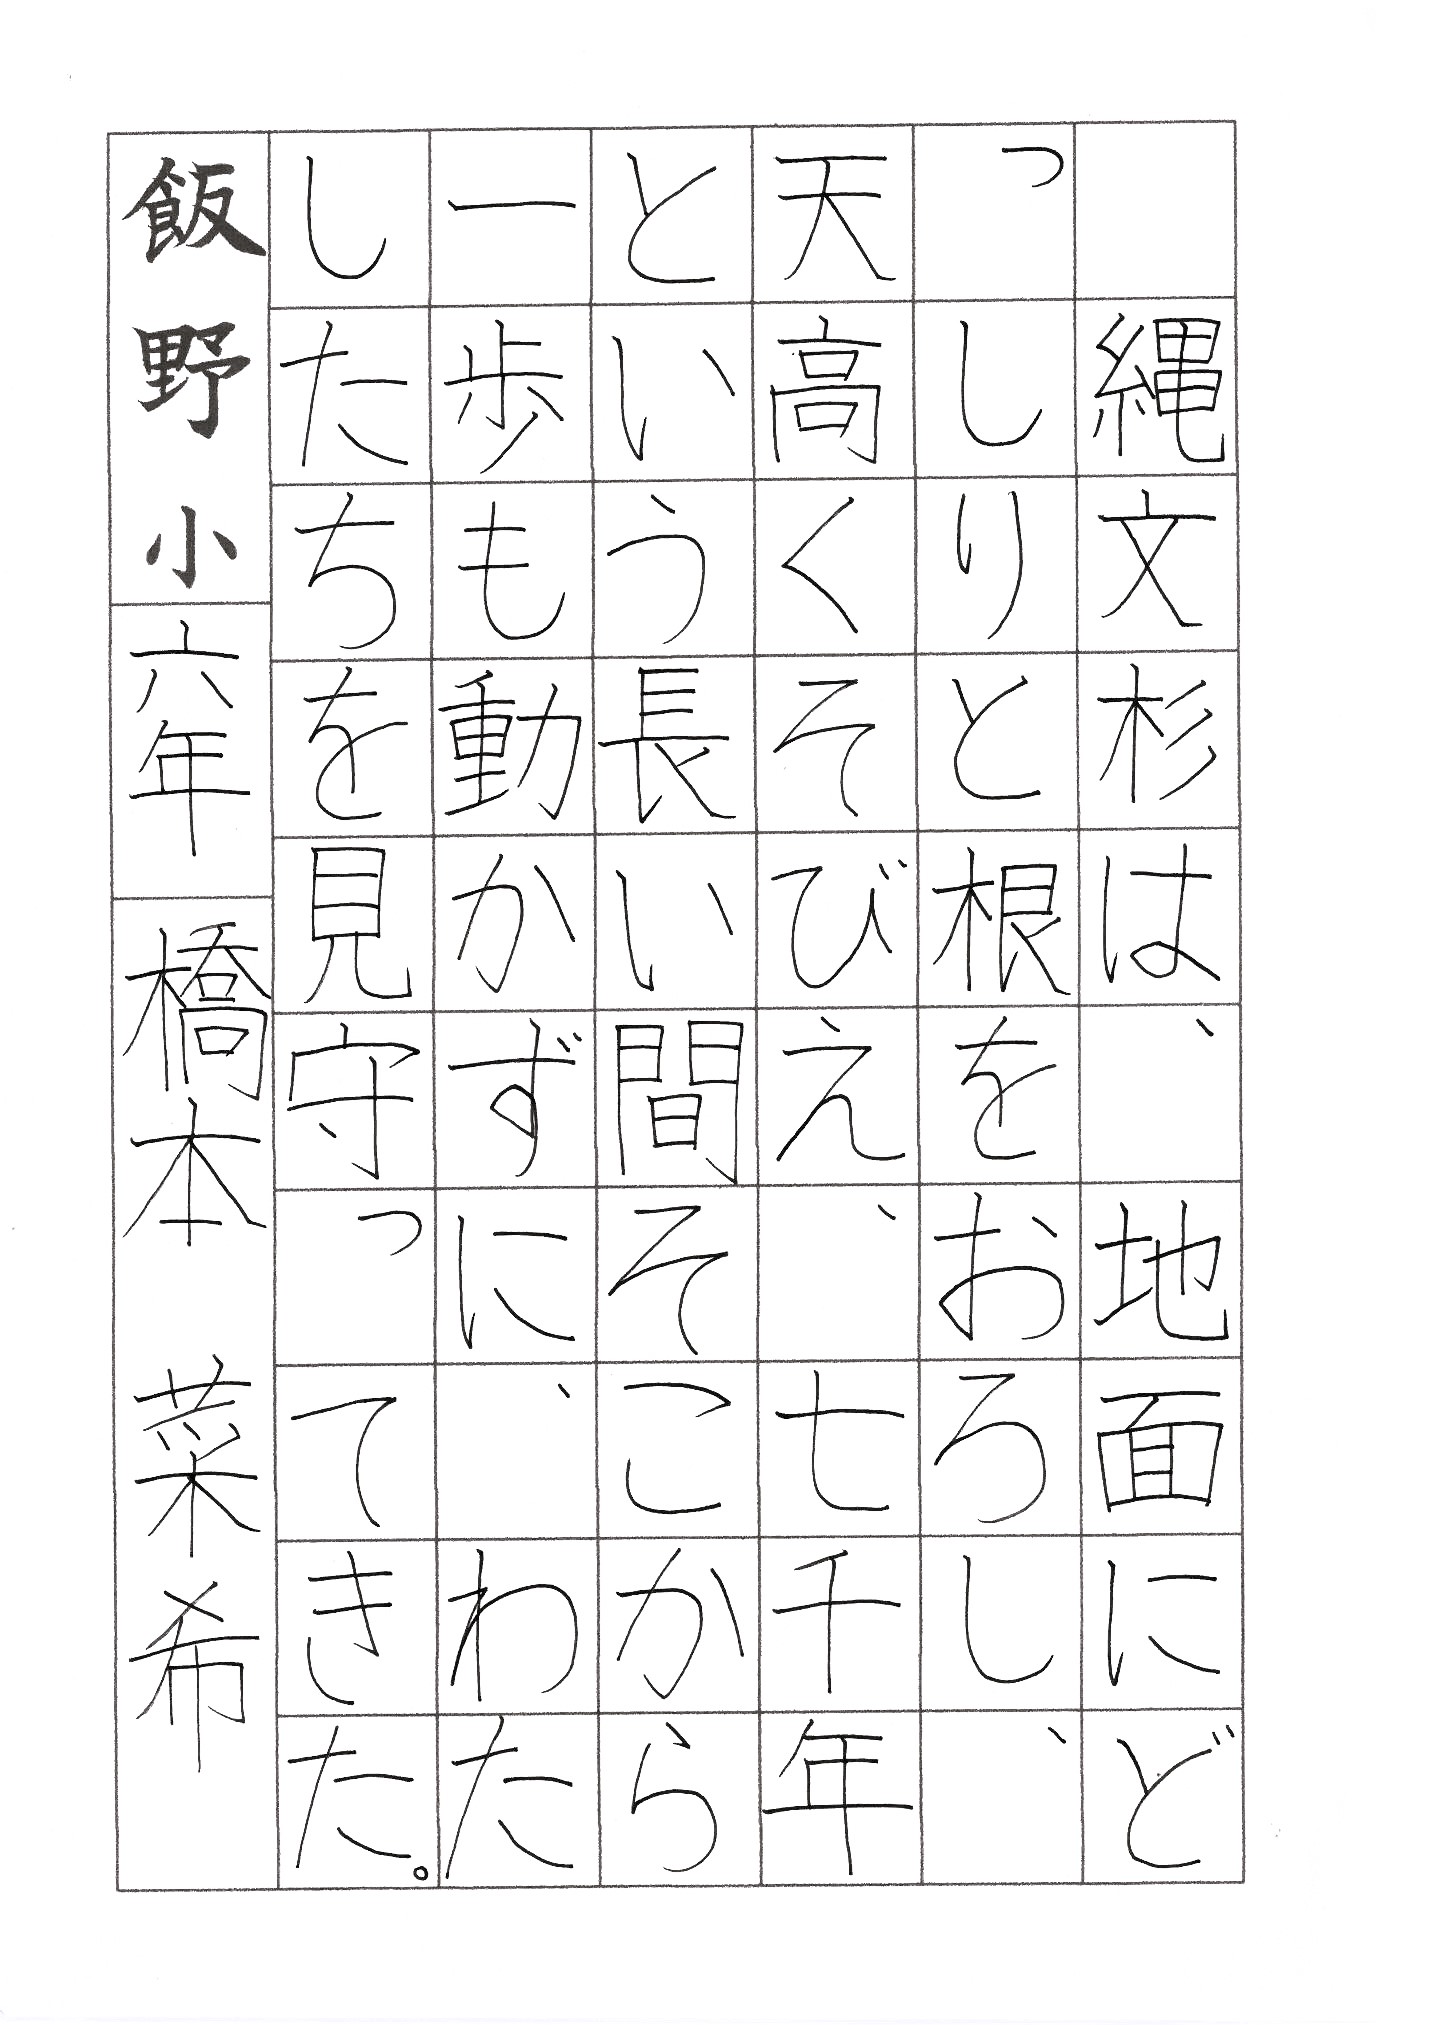 縄文杉は、地面にど
っしりと根をおろし、
天高くそびえ、七千年
という長い間そこから
一歩も動かずに、わた
したちを見守ってきた。
飯野小六年橋本　菜希